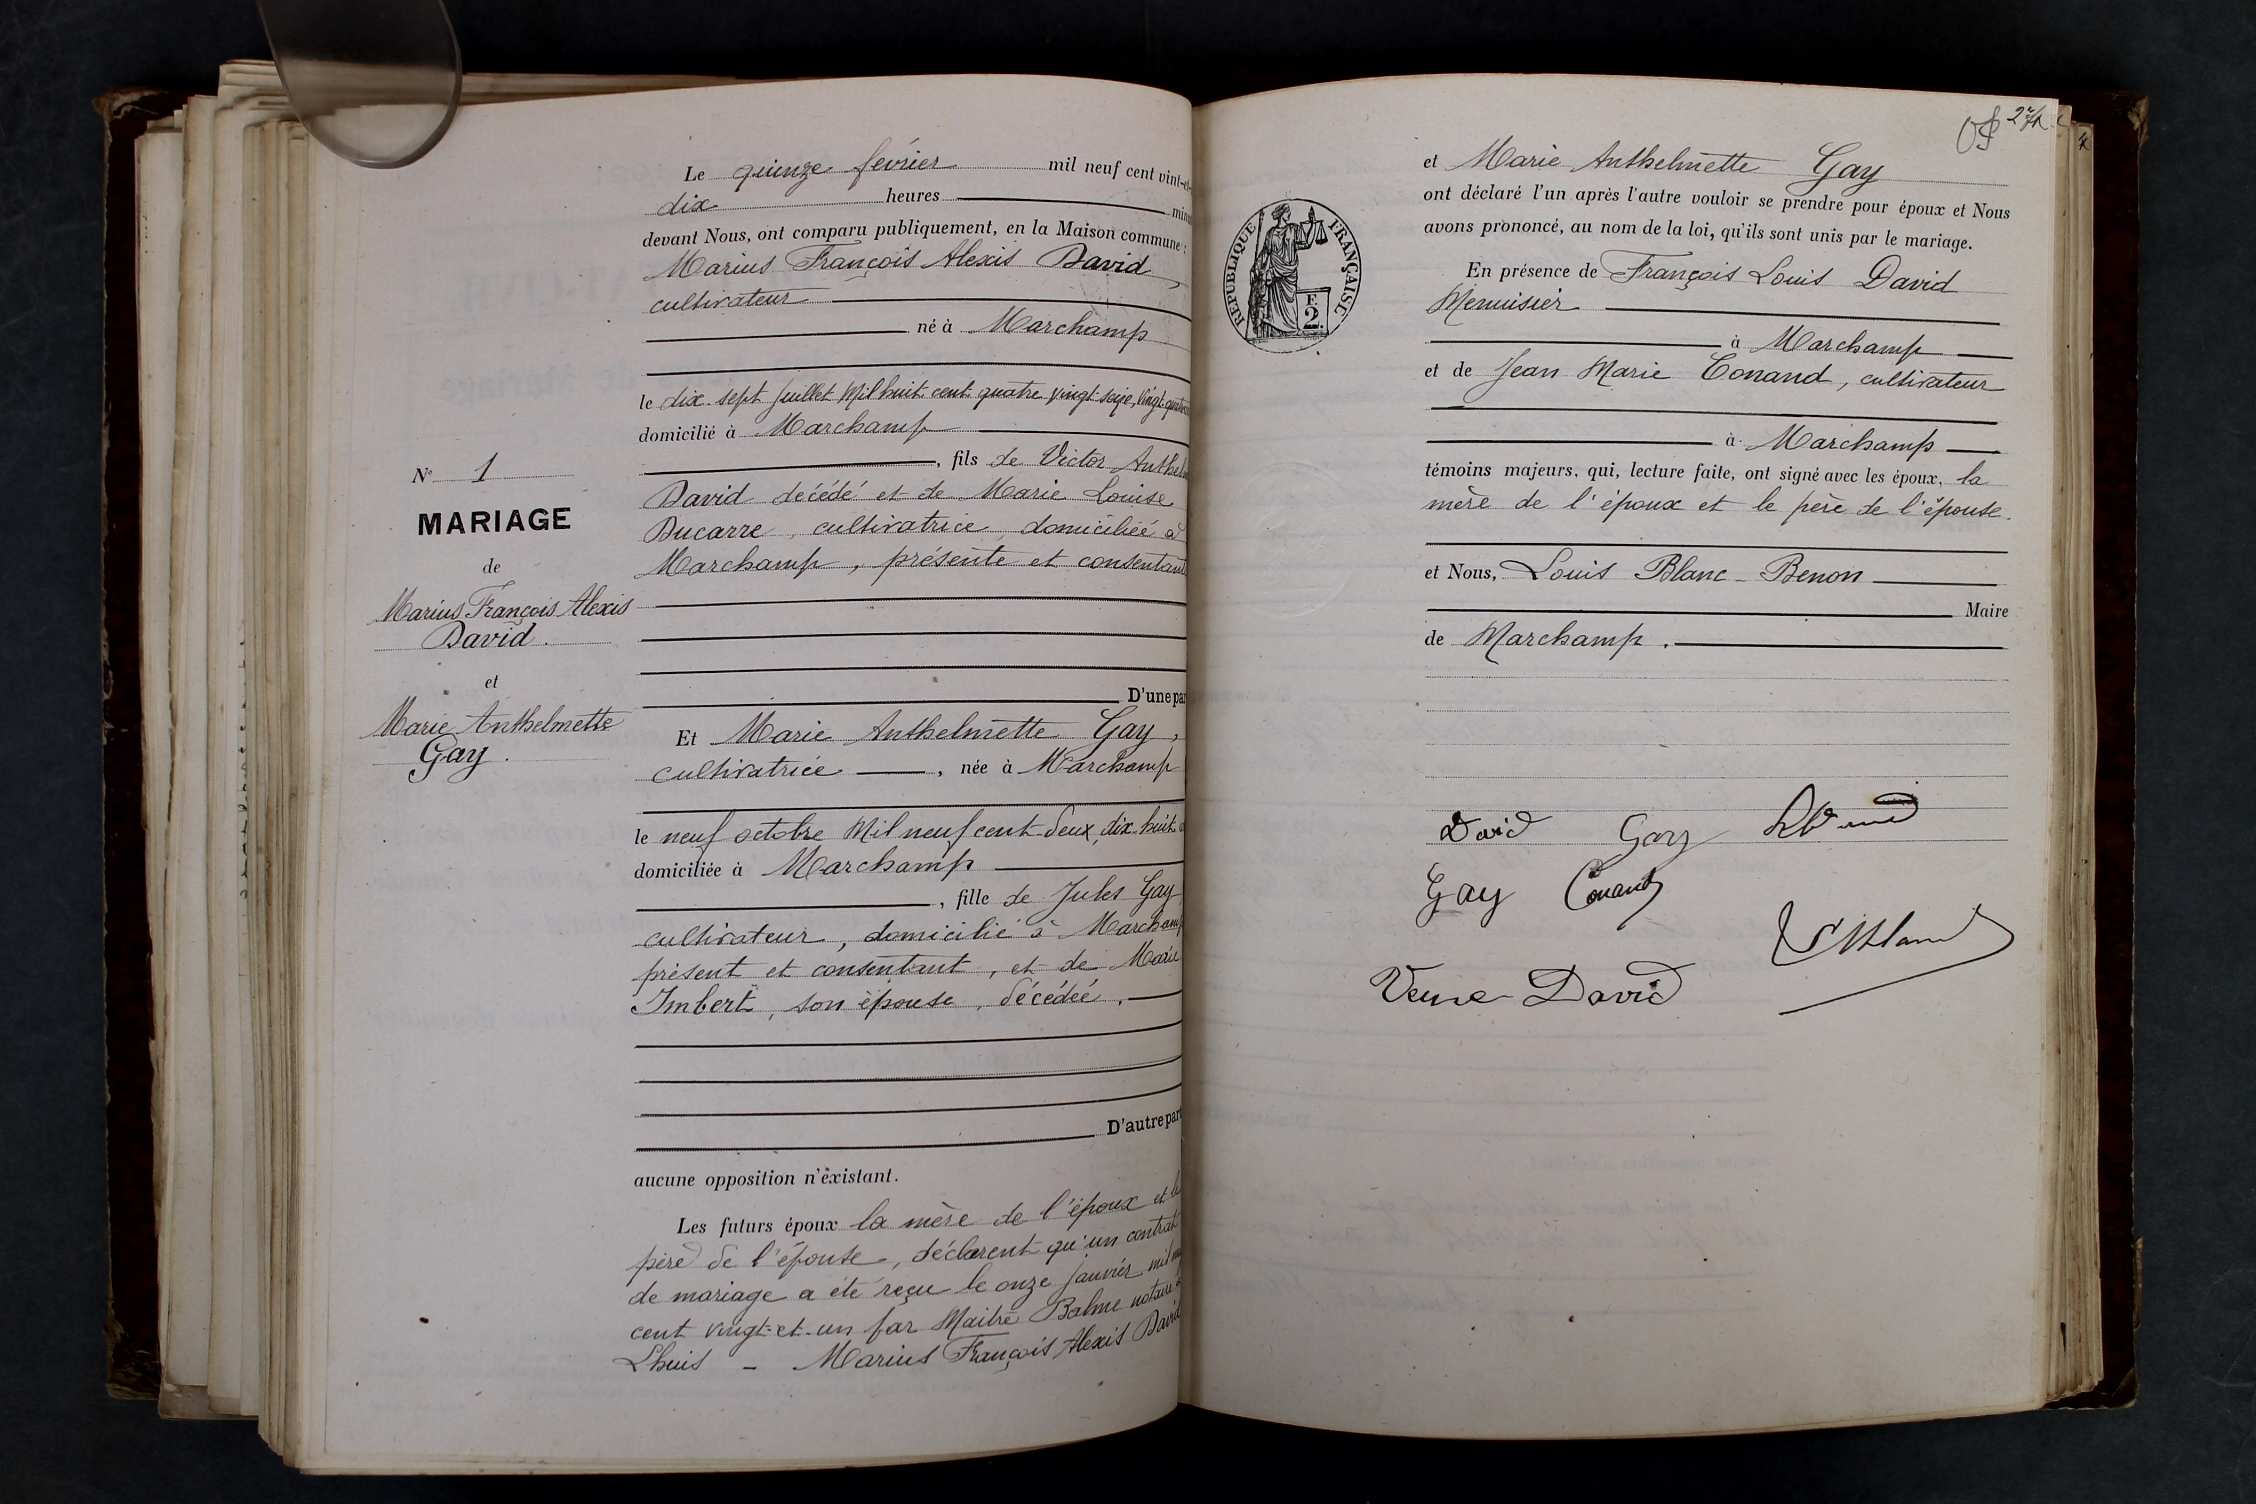 Le quinze février mil neuf cent vint-et-
dix heures
devant Nous, ont comparu publiquement, en la Maison commune :
Marius François Alexis David,
cultivateur
né à Marchamp
le dix-sept Juillet Mil huit cent quatre vingt seize, vingt-quatre
domicilié à Marchamp
, fils de Victor Anthel
David décédé et de Marie Louise
Ducarre, cultivatrice, domiciliée à
Marchamp, présente et consentant
D'une par
Et Marie Anthelmette Gay,
cultivatrice, née à Marchamp
le neuf octobre Mil neuf cent deux, dix huit
domiciliée à Marchamp
, fille de Jules Gay
cultivateur, domicilié à Marchamp
présent et consentant, et de Marie
Imbert, son épouse, décédée.
D'autre part
aucune opposition n'existant.
Les futurs époux la mère de l'époux et le
père de l'épouse, déclarent qu'un contrat
de mariage a été reçu le onze janvier mil
cent vingt-et-un par Maître Balme notaire à
Lhuis - Marius François Alexis David
N° 1
MARIAGE
de
Marius François Alexis
David.
et
Marie Anthelmette
Gay.
et Marie Anthelmette Gay
ont déclaré l'un après l'autre vouloir se prendre pour époux et Nous
avons prononcé, au nom de la loi, qu'ils sont unis par le mariage.
En présence de François Louis David
Menuisier
à Marchamp
et de Jean Marie Conand, cultivateur
à Marchamp
témoins majeurs, qui, lecture faite, ont signé avec les époux, la
mère de l'époux et le père de l'épouse.
et Nous, Louis Blanc-Benon
Maire
de Marchamp.
RÉPUBLIQUE FRANÇAISE
F.
2.
David Gay
Gay Conand
Veuve David